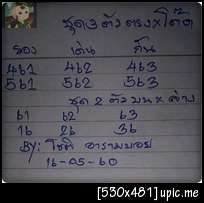 ชุด 3 ตัว ตรง x โต๊ด
รอง เด่น ดั้น
461 462 463
561 562 563
ชุด 2 ตัว บน x ล่าง
61 62 63
16 26 36
BY: โชติ อารามบอย
16-05-60
[530x481] upic.me